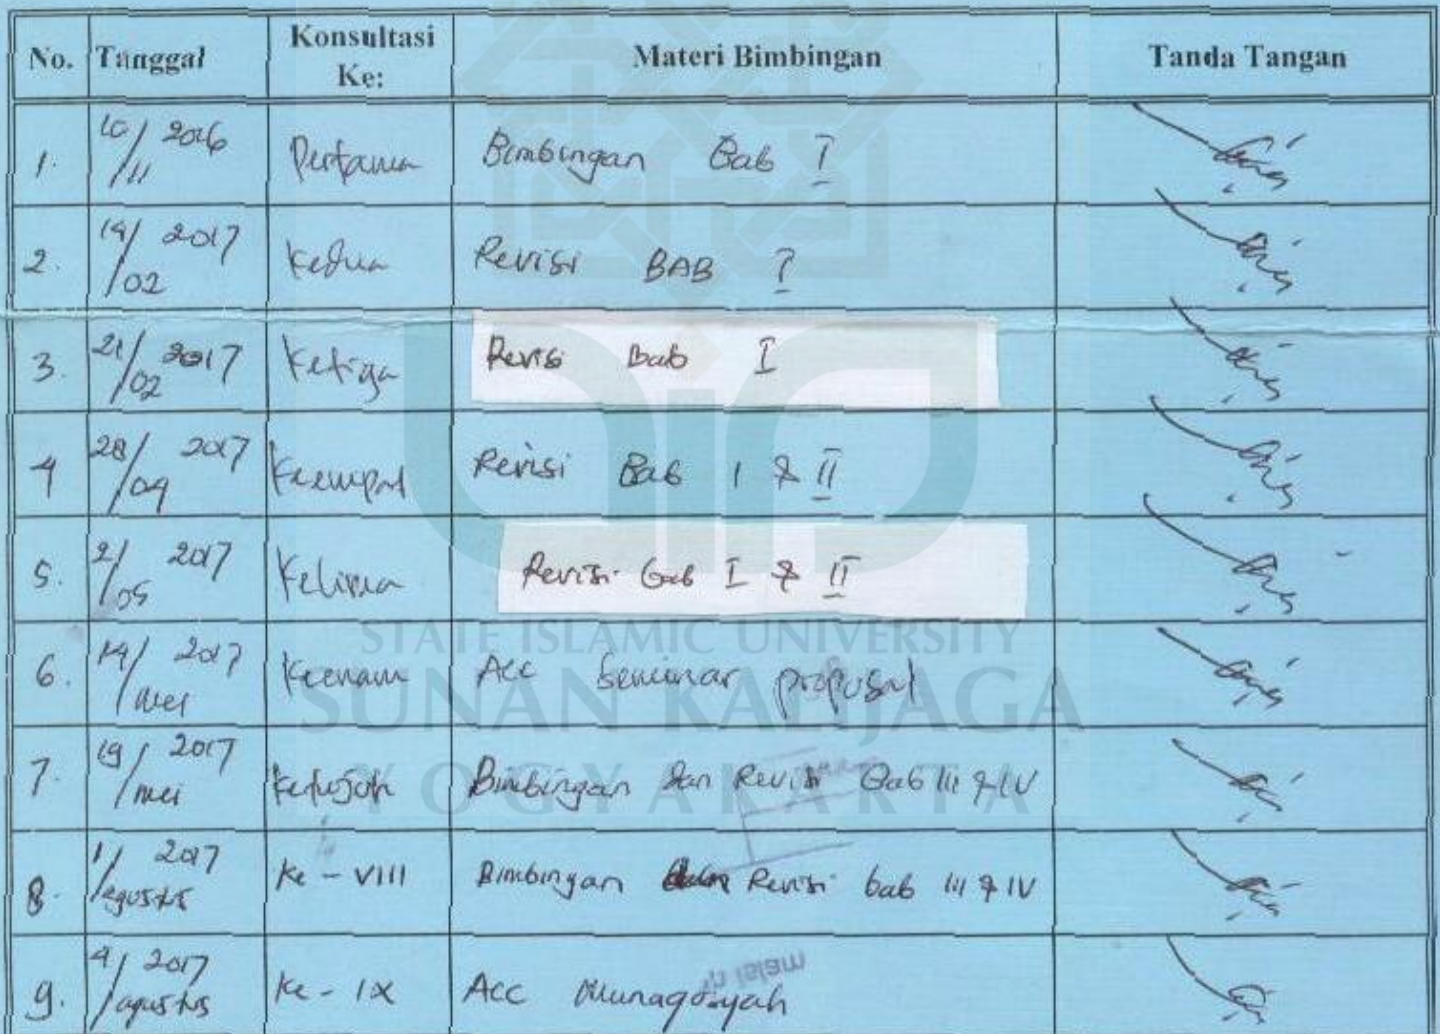 No. Tanggal Konsultasi Ke: Materi Bimbingan Tanda Tangan
1. 10/11 2016 Pertama Bimbingan Bab I
2. 14/02 2017 Kedua Revisi BAB I
3. 21/02 2017 Ketiga Revisi Bab I
4 28/04 2017 Keempat Revisi Bab I & II
5. 2/05 2017 Kelima Revisi bab I & II
6. 14/mei 2017 Keenam Acc Seminar proposal
7. 19/mei 2017 Ketujuh Bimbingan dan Revisi Bab III & IV
8. 1/agustus 2017 Ke - VIII Bimbingan dan Revisi bab III & IV
9. 4/agustus 2017 Ke - IX Acc Munaqosyah
STATE ISLAMIC UNIVERSITY
SUNAN KALIJAGA
YOGYAKARTA